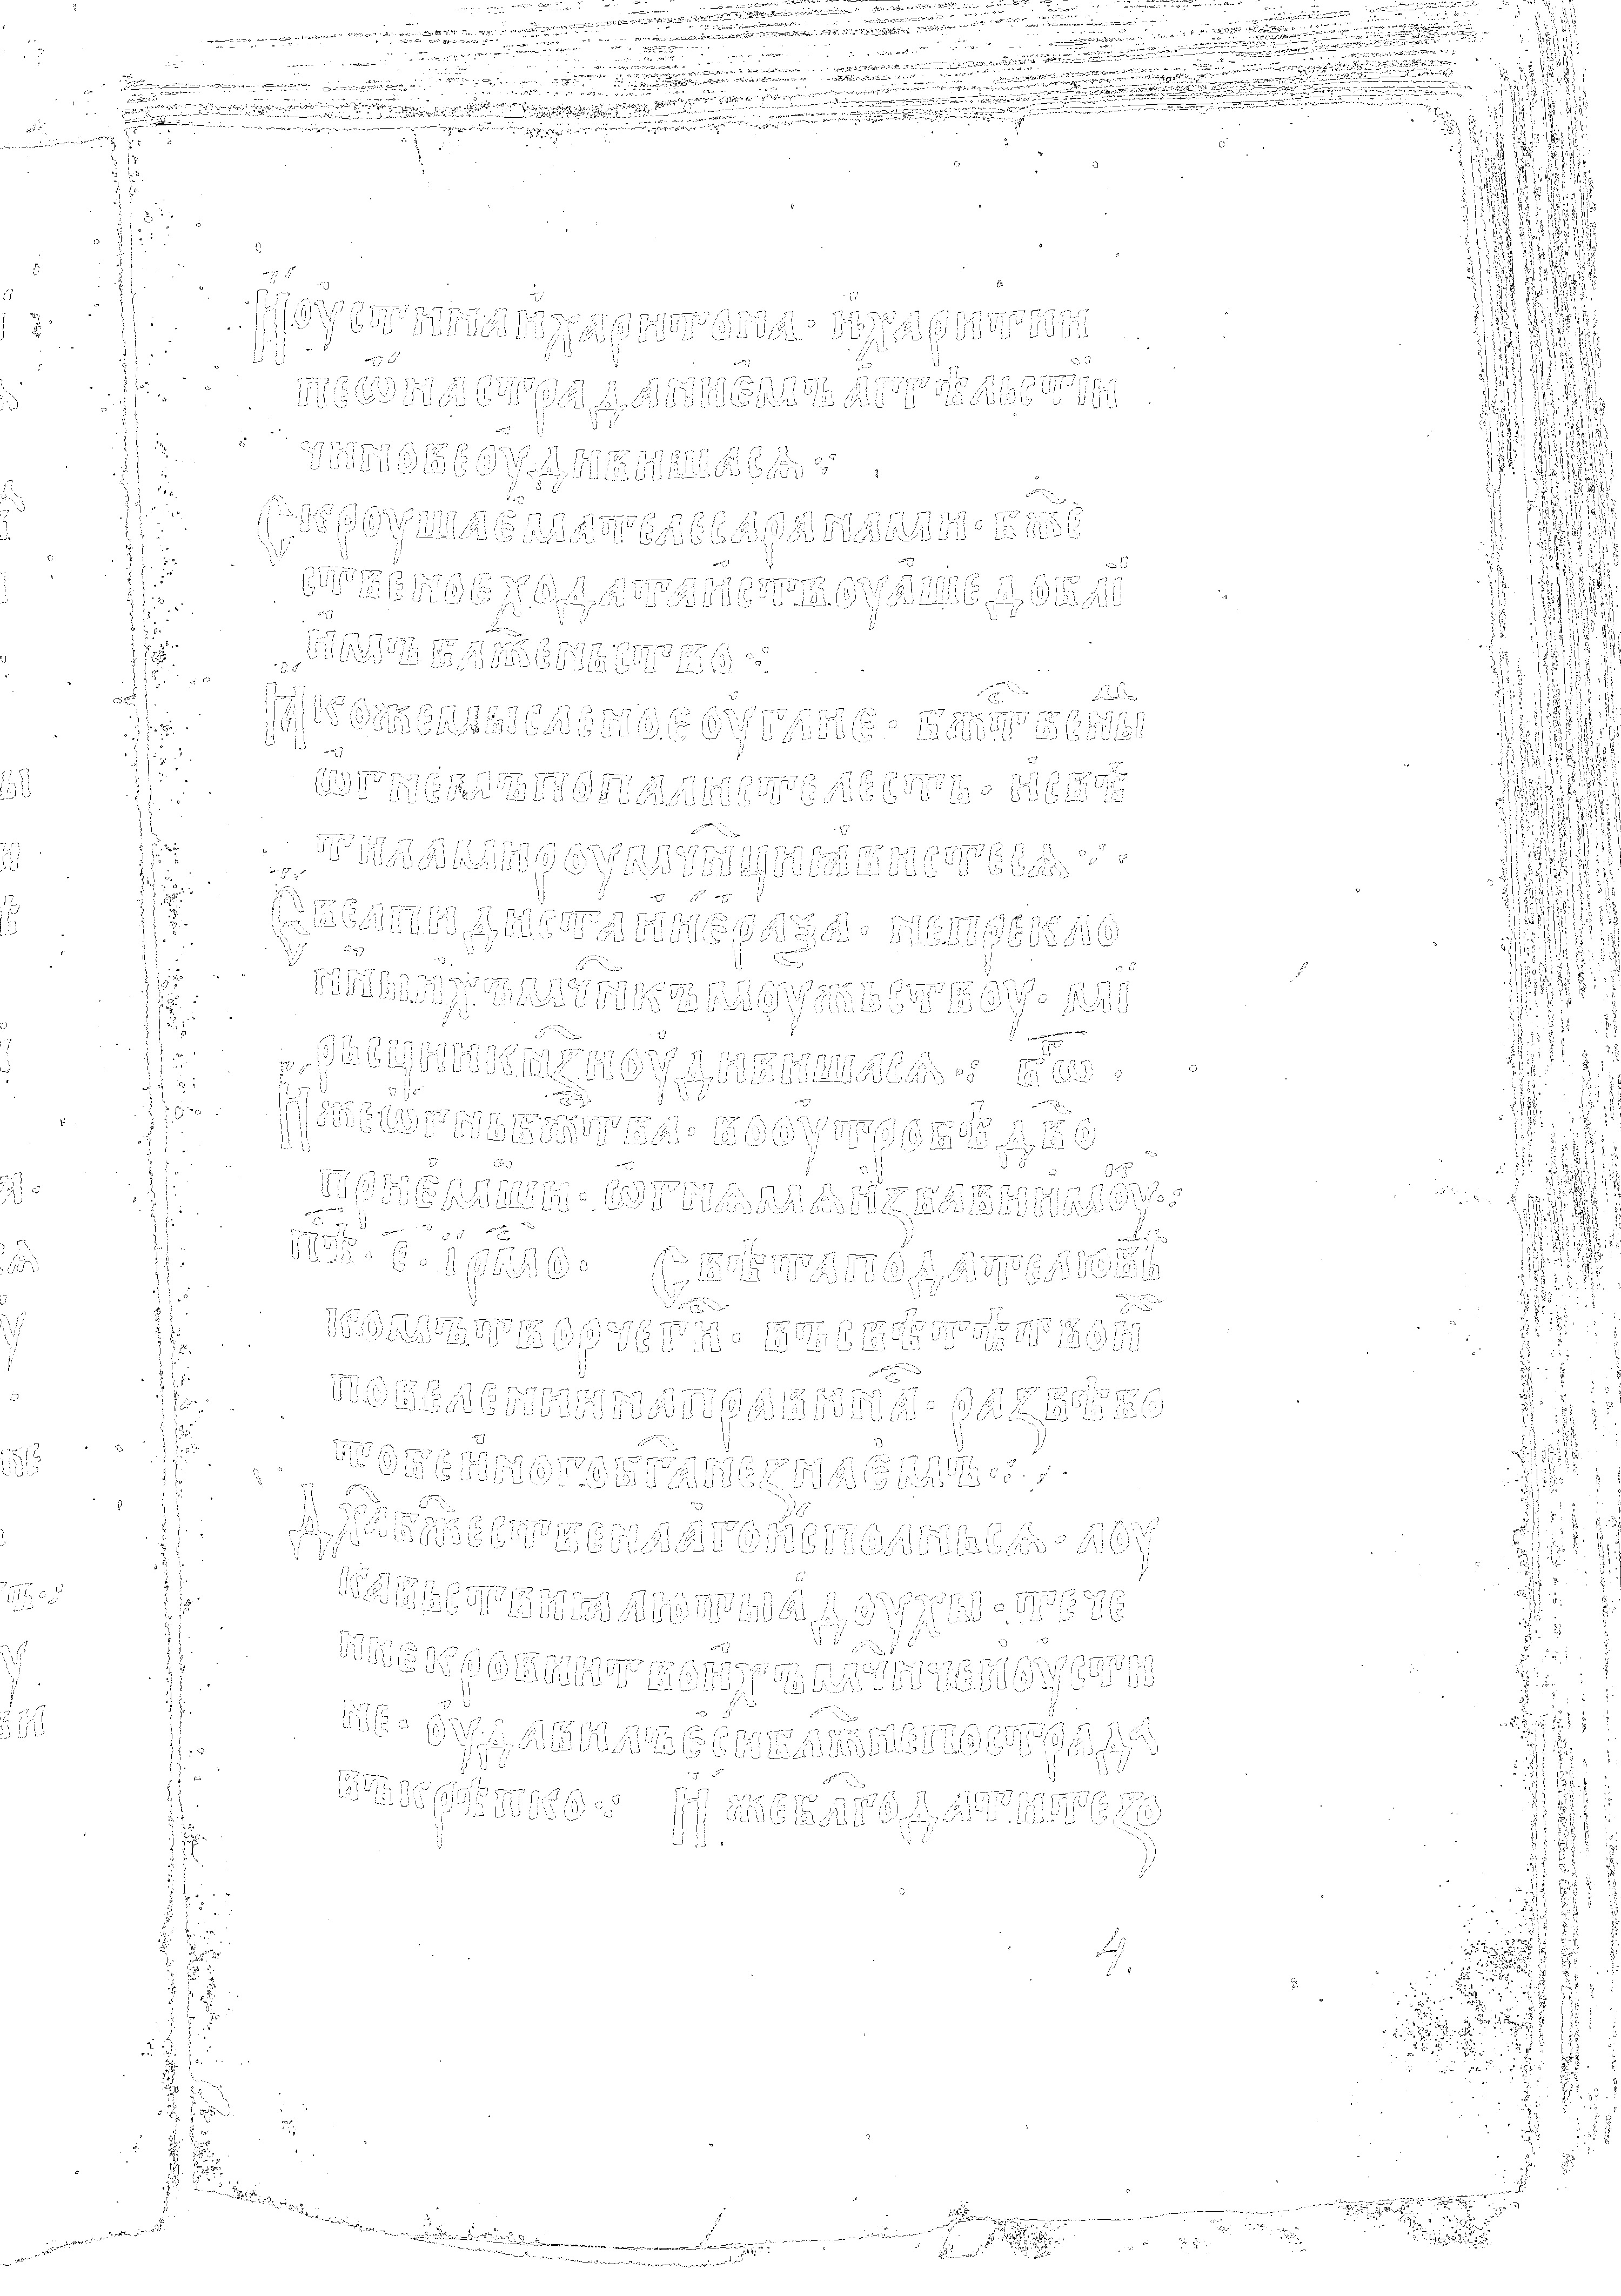 Иоустинаихаритона· ихаритии
пеѡнастраданиемъ аггѣльстїи
чиновеоудивишасѧ ⁘
Скроушаемателесаранами· бж҃е
ственоеходатаиствоуаше доблї
имъ бл҃женьство ⁘
Ꙗкожемысленое оугл҃ие· бж҃твены
ѡгнемъпопалистелесть· исвѣ
тиламироумч҃нциꙗвистесѧ ⁘
Свелпидистаниераза· непрекло
нныихъмч҃нкъмоужьствоу· мї
рьсциикнѧ҃зиоудивишасѧ ⁘ бг҃ѡ ·
Ижеѡгньбж҃тва· вооутробѣдв҃о
приемши· ѡгнѧмѧизбавиимоу ⁘
пѣ · е҃ · їрмо · Свѣтаподателювѣ
комътворчеги· въсвѣтѣтвои
повелениинаправин҃а· развѣбо
тобеиногобг҃анезнаемъ ⁘
Дх҃абж҃ественаагоисполньсѧ· лоу
кавьствиꙗлютыадоухы· тече
ниекровиитвоихъмч҃нчеиоусти
не· оудавилъесибл҃жнепострада
въкрѣпко ⁘ Ижеблгодатитезо
4.